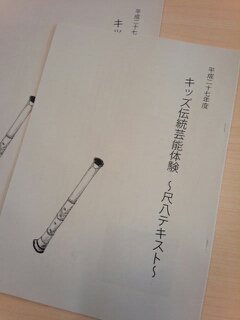 平成二十七年度
キッズ伝統芸能体験 ～尺八テキスト～
平成二十七
キッ